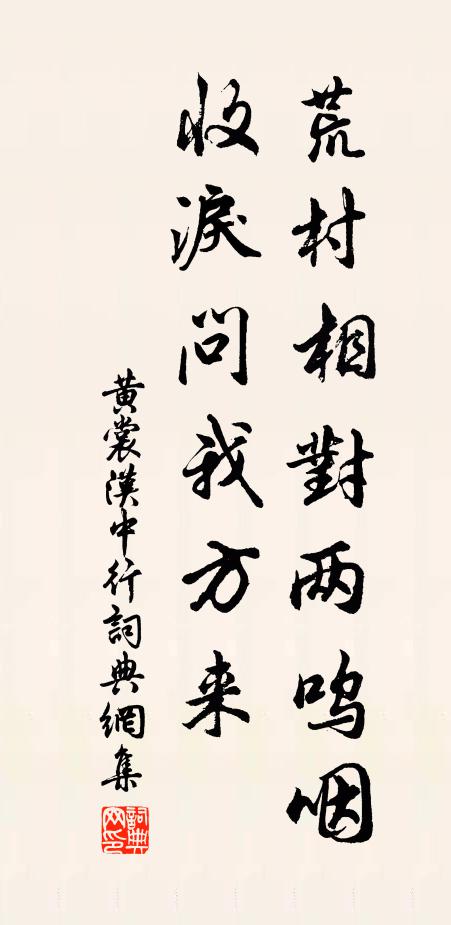 荒村相對两鸣咽
收淚問我方来
黄裳漢中行詞典網集
詞典网印